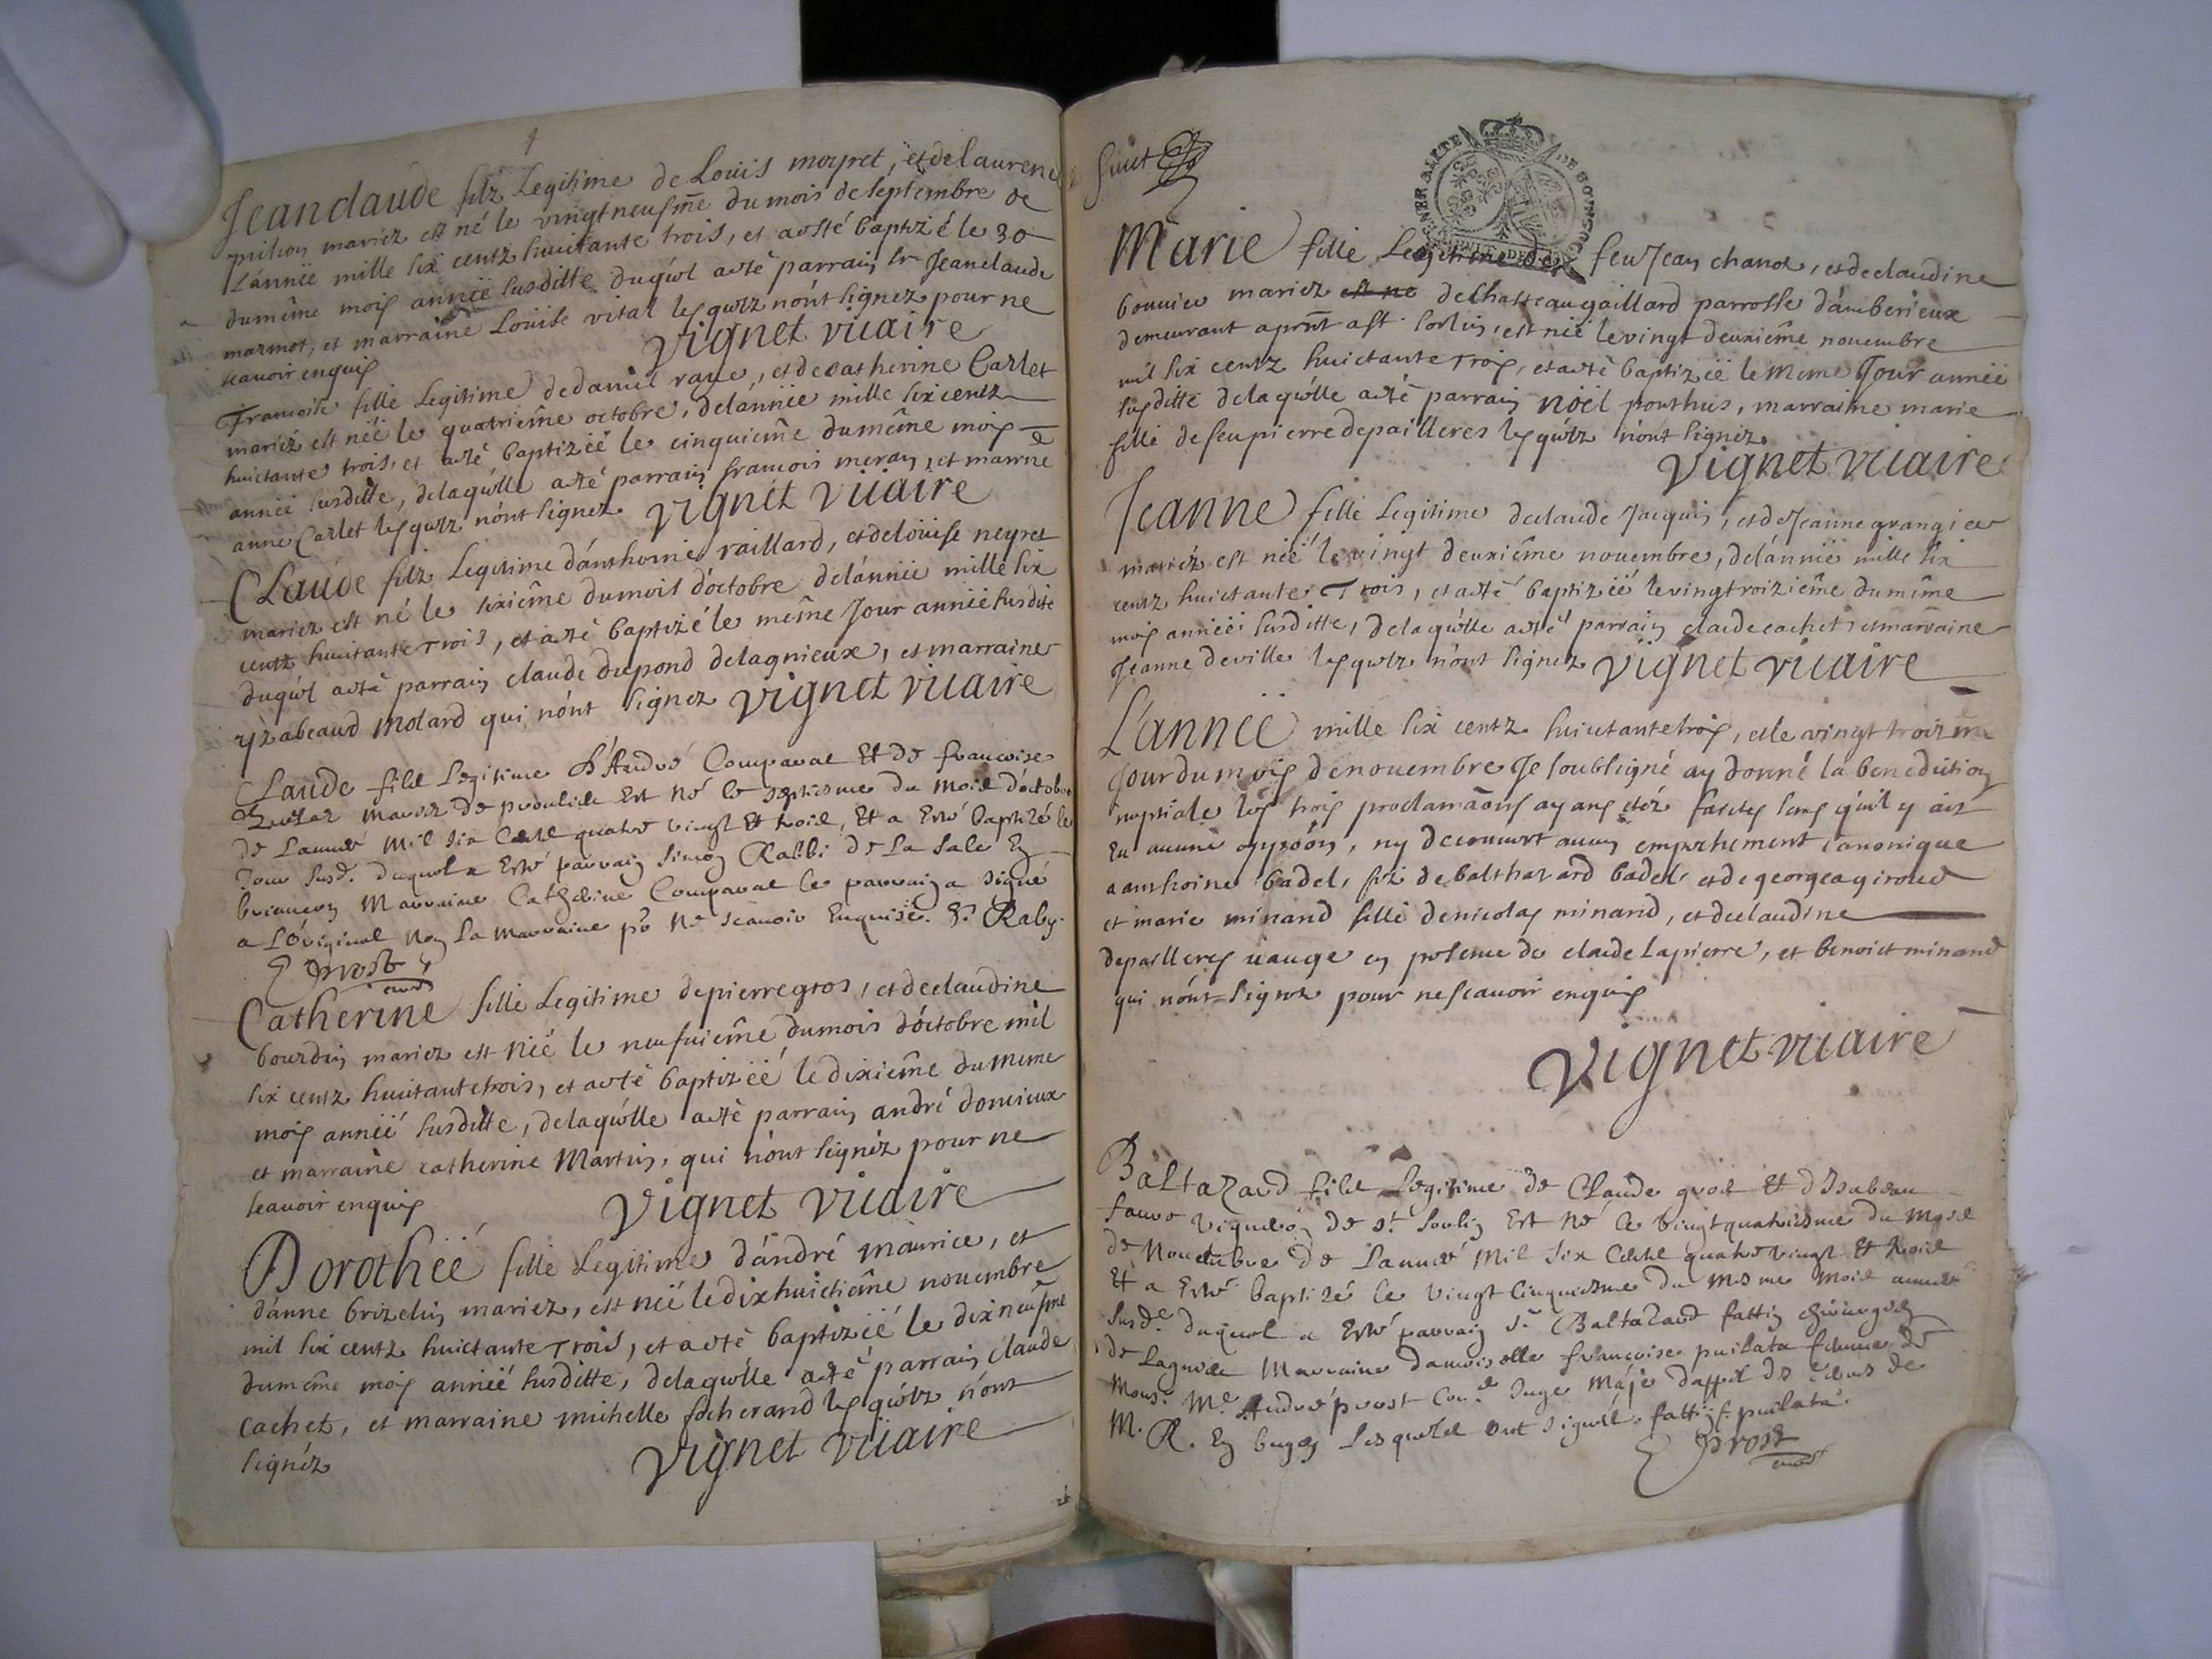 Jeanclaude filz Legitime de Louis moyret, et de laurence
mariez est né le vingt neufme du mois de septembre de
L'année mille six centz huictante trois, et a esté baptizé le 30
du même mois année susditte duqúel a esté parrain sr Jeanclaude
marmot, et marraine Louise vital lesquelz n'ónt signez pour ne
scavoir enquis
Vignet vicaire
Francoise fille Legitime de daniel raye, et de catherine Carlet
mariéz est néé le quatriême octobre, de lannéé mille six centz
huictante trois, et a esté baptizéé le cinquiéme du même mois
année susditte, delaqúelle a esté parrain francois meran, et marrne
anne Carlet lesquelz n'ónt signez. Vignet Vicaire
CLaude filz Legitime d'ánthoine raillard, et de loúise neyret
mariez est né le sixiême du mois d'octobre de lánnéé mille six
centz huictante trois, et a esté baptizé le même Jour annéé susdite
duqúel a esté parrain claude dupond delagnieux, et marraine
yzabeaud Molard qui n'ónt signez Vignet vicaire
Claude filz Legitime d'André Comparat Et de francoise
mariez de proulieu Est né le septiesme du mois d'octobre
de L'année mil six Centz quatre vingt Et trois, Et a Esté baptizé le
Jour susd. duquel a Esté parrain Simon Rabbi de La Sale En
briancon Marraine Catherine Comparat le parrain a signé
a L'original Non La marraine pr Ne scauoir Enquise. S. Raby.
Prost
curé
Catherine fille Legitime de pierre gros, et de claudine
bourdin mariez est néé le neufuiéme du mois d'óctobre mil
six centz huictante trois, et a esté baptizéé le dixiéme du meme
mois annéé susditte, delaqúelle a esté parrain andré doncieux
et marraine catherine Martin, qui n'ónt signéz pour ne
scavoir enquis
Vignet Vicaire
Dorothéé fille Legitime d'ándré maurice, et
d'ánne brizelin mariez, est néé le dix huictiême nouembre
mil six centz huictante Trois, et a esté baptizéé le dix neufme
du meme mois annéé susditte, delaqúelle a esté parrain claude
Cachet, et marraine michelle focherand lesqúelz n'ónt
signéz
Vignet vicaire
suit
GENERALITE DE BOURGOGNE
Marie fille Legitime de feu Jean chanel, et de claudine
bouuier mariez est ne de Chasteaugaillard parrosse d'amberieux
demeurant aprnt a st. sorlin, est néé le vingt deuxiême nouembre
mil six centz huictante Trois, et a esté baptizéé le meme Jour annéé
susditte delaqúelle a esté parrain nöel ponthus, marraine marie
fille de feu pierre depailleres lesqúelz n'ónt signez.
Vignet vicaire
Jeanne fille Legitime de claude Jacquin, et de Jeanne grangier
mariéz est néé le vingt deuxiême nouembre, de lánnéé mille six
centz huictante Trois, et a esté baptizéé le vingt troiziême du même
mois annéé susditte, delaqúelle a esté parrain claude cachet, et marraine
Jeanne deville lesquelz n'ónt signéz Vignet vicaire
L'ánnéé mille six centz huictante trois, et le vingt troizme
Jour du mois de nouembre Je soubsigné ay donné la benediction
nuptiale les trois proclamãons ayans etéz faictes sans qúil y ait
Eu aucune oppoõn, ny decouuert aucun empechement canonique
a anthoine badel, fiz de balthazard badel, et de georgea giroud
et marie minand fille de nicolas minand, et de claudine
depailleres veuue en presence de claude Lapierre, et benoict minand
qui n'ónt signez pour ne scavoir enquis
Vignet vicaire
Baltazard filz Legitime de Claude gros Et d'Isabeau
faure vigneron de st. sorlin Est Né le vingt quatriesme du mois
de Nouembre de L'année Mil six Centz quatre vingt Et trois
Et a Esté baptizé le vingt Cinquiesme du mesme mois année
susde. duquel a Esté parrain sr. Baltazard fattin chirurgien
de Lagnieu Marraine damoiselle francoise puilata femme de
Mons. Me. André prost Con.er Juge Máje
M. R. En bugey Lesquelz ont signéz. fattin f. puilata.
Prost
curé